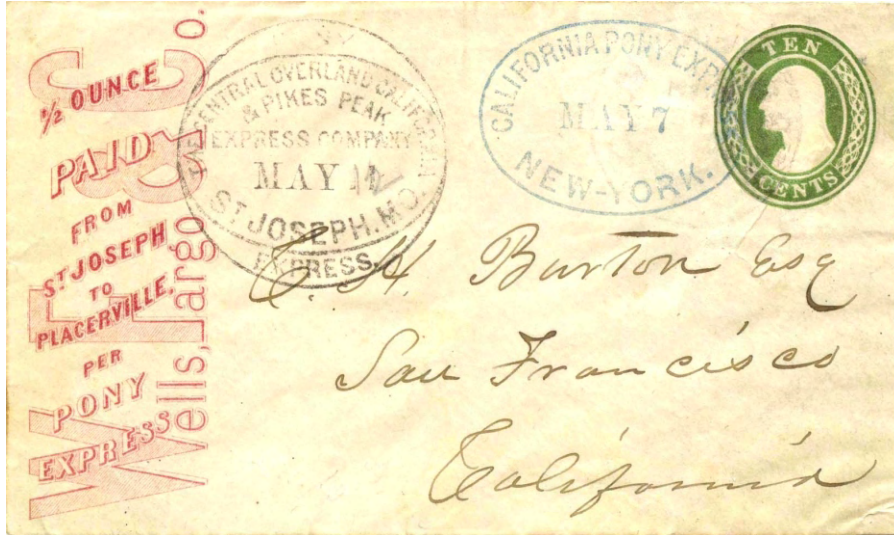 ½ OUNCE
PAID
FROM
ST JOSEPH
TO
PLACERVILLE.
PER
PONY
EXPRESS
Wells, Fargo & Co.
THE CENTRAL OVERLAND CALIFORNIA
& PIKES PEAK
EXPRESS COMPANY
MAY
ST JOSEPH. MO.
EXPRESS.
CALIFORNIA PONY EXPRESS
MAY 7
NEW-YORK.
TEN
CENTS
E. H. Burton Esq
San Francisco
California